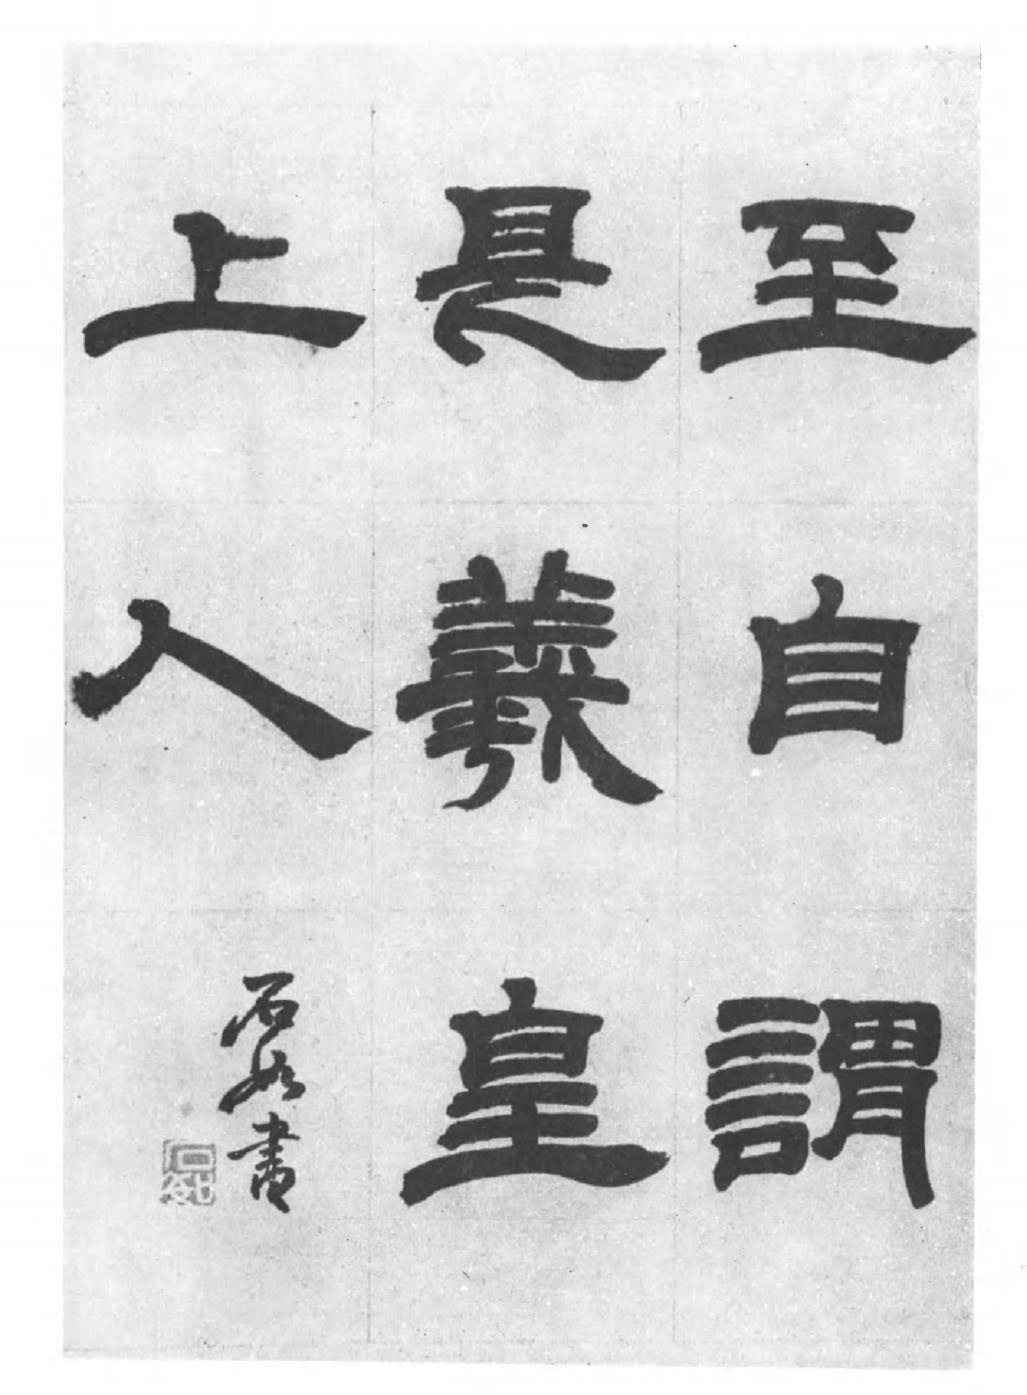 至自謂
是羲皇
上人
石如書
石如